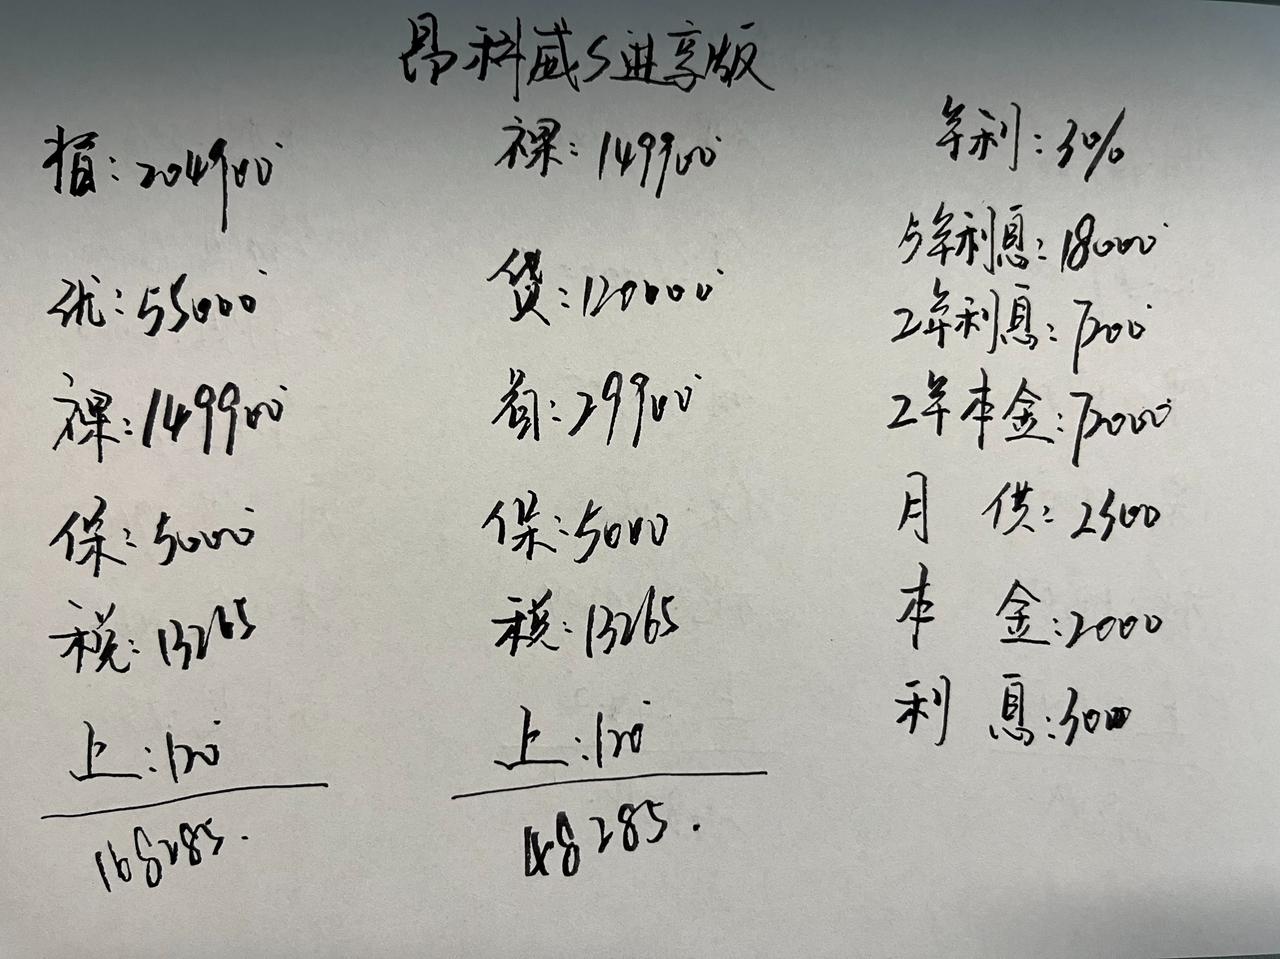 昂科威S进享版
指: 204900
优: 55000
裸: 149900
保: 5000
税: 13265
上: 120
168285.
裸: 149900
贷: 120000
首: 29900
保: 5000
税: 13265
上: 120
48285.
年利: 3%
5年利息: 18000
2年利息: 7200
2年本金: 72000
月 供: 2300
本 金: 2000
利 息: 300